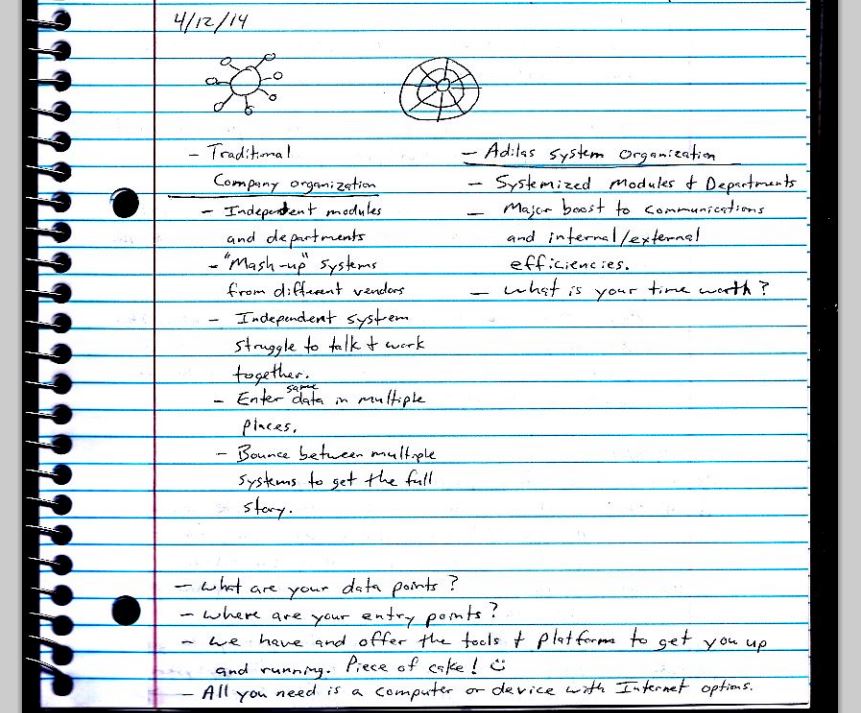 4/12/14
- Traditional
Company organization
- Independent modules
and departments
- "Mash-up" systems
from different vendors
- Independent system
struggle to talk + work
together.
- Enter same data in multiple
places.
- Bounce between multiple
systems to get the full
story.
- Adilas System Organization
- Systemized Modules + Departments
- Major boost to communications
and internal/external
efficiencies.
- What is your time worth?
- What are your data points?
- Where are your entry points?
- We have and offer the tools + platform to get you up
and running. Piece of cake! ☺
- All you need is a computer or device with Internet options.